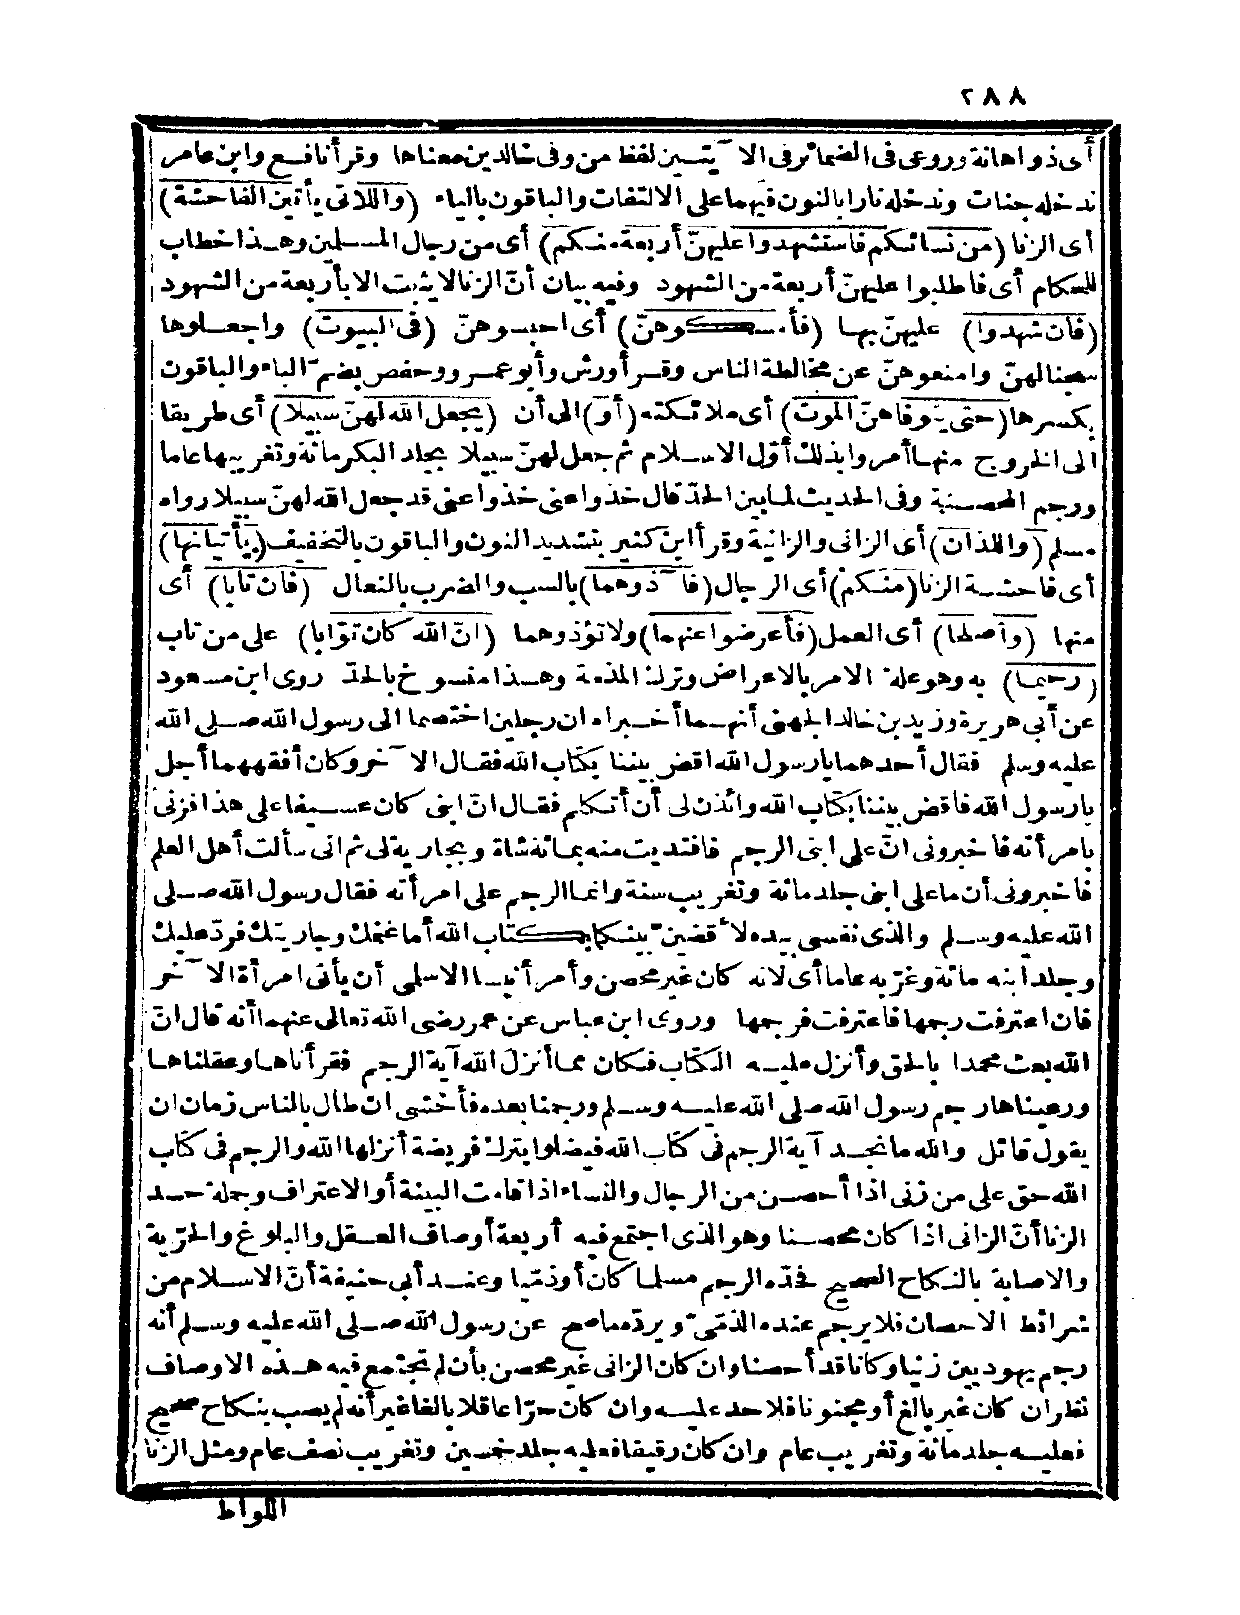 ٢٨٨
أى ذو اهانة وروعى فى الضمائر فى الآيتين لفظ من وفى خالدين معناها وقرأ نافع وابن عامر
ندخله جنات وندخله نارا بالنون فيهما على الالتفات والباقون بالياء (واللاتى يأتين الفاحشة)
أى الزنا (من نسائكم فاستشهدوا عليهنّ أربعة منكم) أى من رجال المسلمين وهذا خطاب
للحكام أى فاطلبوا عليهنّ أربعة من الشهود وفيه بيان أنّ الزنا لا يثبت الا بأربعة من الشهود
(فان شهدوا) عليهنّ بها (فأمسكوهنّ) أى احبسوهنّ (فى البيوت) واجعلوها
سجنا لهنّ وامنعوهنّ عن مخالطة الناس وقرأ ورش وأبو عمرو وحفص بضم الباء والباقون
بكسرها (حتى يتوفاهنّ الموت) أى ملائكته (أو) الى أن (يجعل الله لهنّ سبيلا) أى طريقا
الى الخروج منها أمروا بذلك أوّل الاسلام ثم جعل لهنّ سبيلا بجلد البكر مائة وتغريبها عاما
ورجم المحصنة وفى الحديث لما بين الحدّ قال خذوا عنى خذوا عنى قد جعل الله لهنّ سبيلا رواه
مسلم (واللذان) أى الزانى والزانية وقرأ ابن كثير بتشديد النون والباقون بالتخفيف (يأتيانها)
أى فاحشة الزنا (منكم) أى الرجال (فآذوهما) بالسب والضرب بالنعال (فان تابا) أى
منها (وأصلحا) أى العمل (فأعرضوا عنهما) ولا تؤذوهما (انّ الله كان توّابا) على من تاب
(رحيما) به وهو علة الامر بالاعراض وترك المذمة وهذا منسوخ بالحدّ روى ابن مسعود
عن أبى هريرة وزيد بن خالد الجهنى أنهما أخبراه ان رجلين اختصما الى رسول الله صلى الله
عليه وسلم فقال أحدهما يا رسول الله اقض بيننا بكتاب الله فقال الآخر وكان أفقههما أجل
يا رسول الله فاقض بيننا بكتاب الله وائذن لى أن أتكلم فقال انّ ابنى كان عسيفا على هذا فزنى
بامرأته فأخبرونى انّ على ابنى الرجم فافتديت منه بمائة شاة وبجارية لى ثم انى سألت أهل العلم
فأخبرونى أن ما على ابنى جلد مائة وتغريب سنة وانما الرجم على امرأته فقال رسول الله صلى
الله عليه وسلم والذى نفسى بيده لأقضين بينكما بكتاب الله أما غنمك وجاريتك فردّ عليك
وجلد ابنه مائة وغرّبه عاما أى لانه كان غير محصن وأمر أنيسا الاسلمى أن يأتى امرأة الآخر
فان اعترفت رجمها فاعترفت فرجمها وروى ابن عباس عن عمر رضى الله تعالى عنهما أنه قال انّ
الله بعث محمدا بالحق وأنزل عليه الكتاب فكان مما أنزل الله آية الرجم فقرأناها وعقلناها
ووعيناها رجم رسول الله صلى الله عليه وسلم ورجمنا بعده فأخشى ان طال بالناس زمان ان
يقول قائل والله ما نجد آية الرجم فى كتاب الله فيضلوا بترك فريضة أنزلها الله والرجم فى كتاب
الله حق على من زنى اذا أحصن من الرجال والنساء اذا قامت البينة أو الاعتراف وجملة حد
الزنا أنّ الزانى اذا كان محصنا وهو الذى اجتمع فيه أربعة أوصاف العقل والبلوغ والحرّية
والاصابة بالنكاح الصحيح فحدّه الرجم مسلما كان أو ذمّيا وعند أبى حنيفة أنّ الاسلام من
شرائط الاحصان فلا يرجم عنده الذمّى ويردّه ما صح عن رسول الله صلى الله عليه وسلم أنه
رجم يهوديين زنيا وكانا قد أحصنا وان كان الزانى غير محصن بأن لم تجتمع فيه هذه الاوصاف
نظر ان كان غير بالغ أو مجنونا فلا حد عليه وان كان حرّا عاقلا بالغا غير أنه لم يصب بنكاح صحيح
فعليه جلد مائة وتغريب عام وان كان رقيقا فعليه جلد خمسين وتغريب نصف عام ومثل الزنا
اللواط